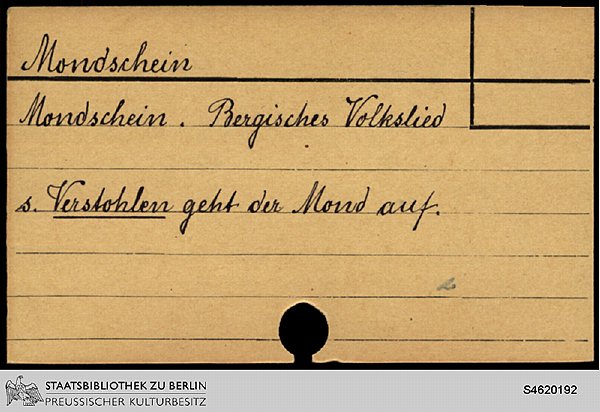 Mondschein
Mondschein. Bergisches Volkslied
s. Verstohlen geht der Mond auf.
STAATSBIBLIOTHEK ZU BERLIN
PREUSSISCHER KULTURBESITZ
S4620192